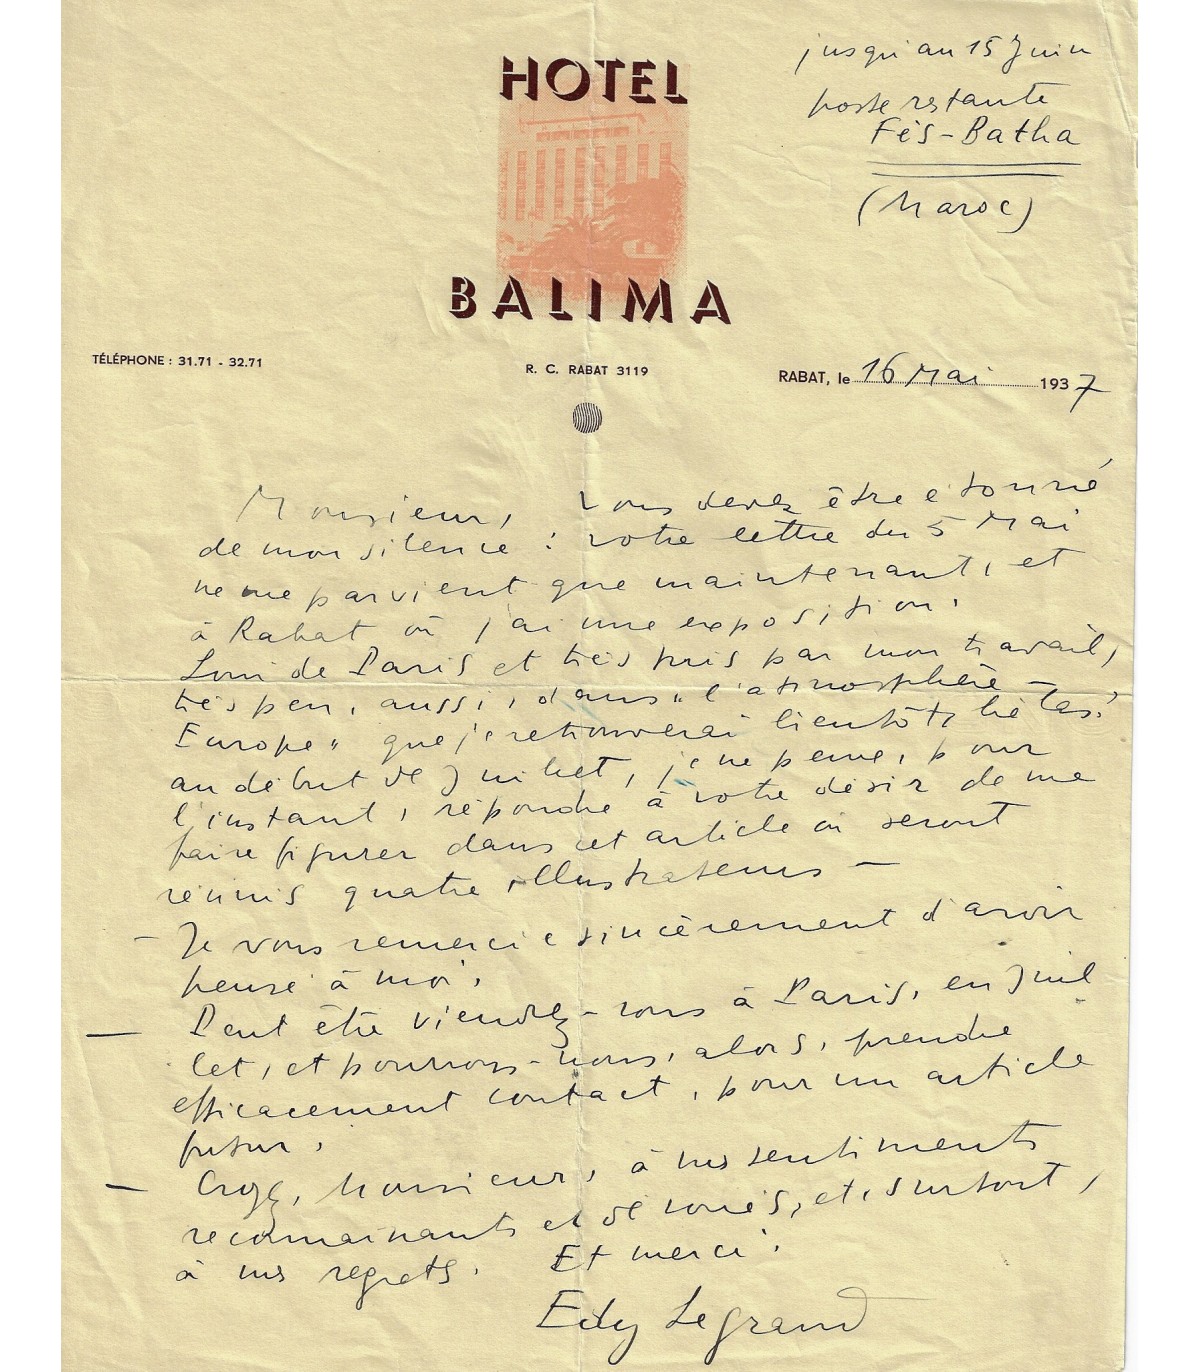 jusqu'au 15 Juin
poste restante
Fès-Batha
(Maroc)
HOTEL
BALIMA
TÉLÉPHONE : 31.71 - 32.71
R. C. RABAT 3119
RABAT, le 16 Mai 1937
Monsieur, vous devez être étonné
de mon silence : votre lettre du 5 Mai
ne me parvient que maintenant, et
à Rabat où j'ai une exposition.
Loin de Paris et très pris par mon travail,
très peu, aussi, dans "l'atmosphère -
Europe" que je retrouverai bientôt, hélas!
au début de Juillet, je ne peux, pour
l'instant, répondre à votre désir de me
faire figurer dans cet article où seront
réunis quatre illustrateurs -
- Je vous remercie sincèrement d'avoir
pensé à moi.
- Peut être viendrez-vous à Paris, en Juil
let, et pourrons-nous, alors, prendre
efficacement contact, pour un article
futur.
- Croyez, Monsieur, à mes sentiments
reconnaissants et dévoués, et, surtout,
à mes regrets. Et merci.
Edy Legrand